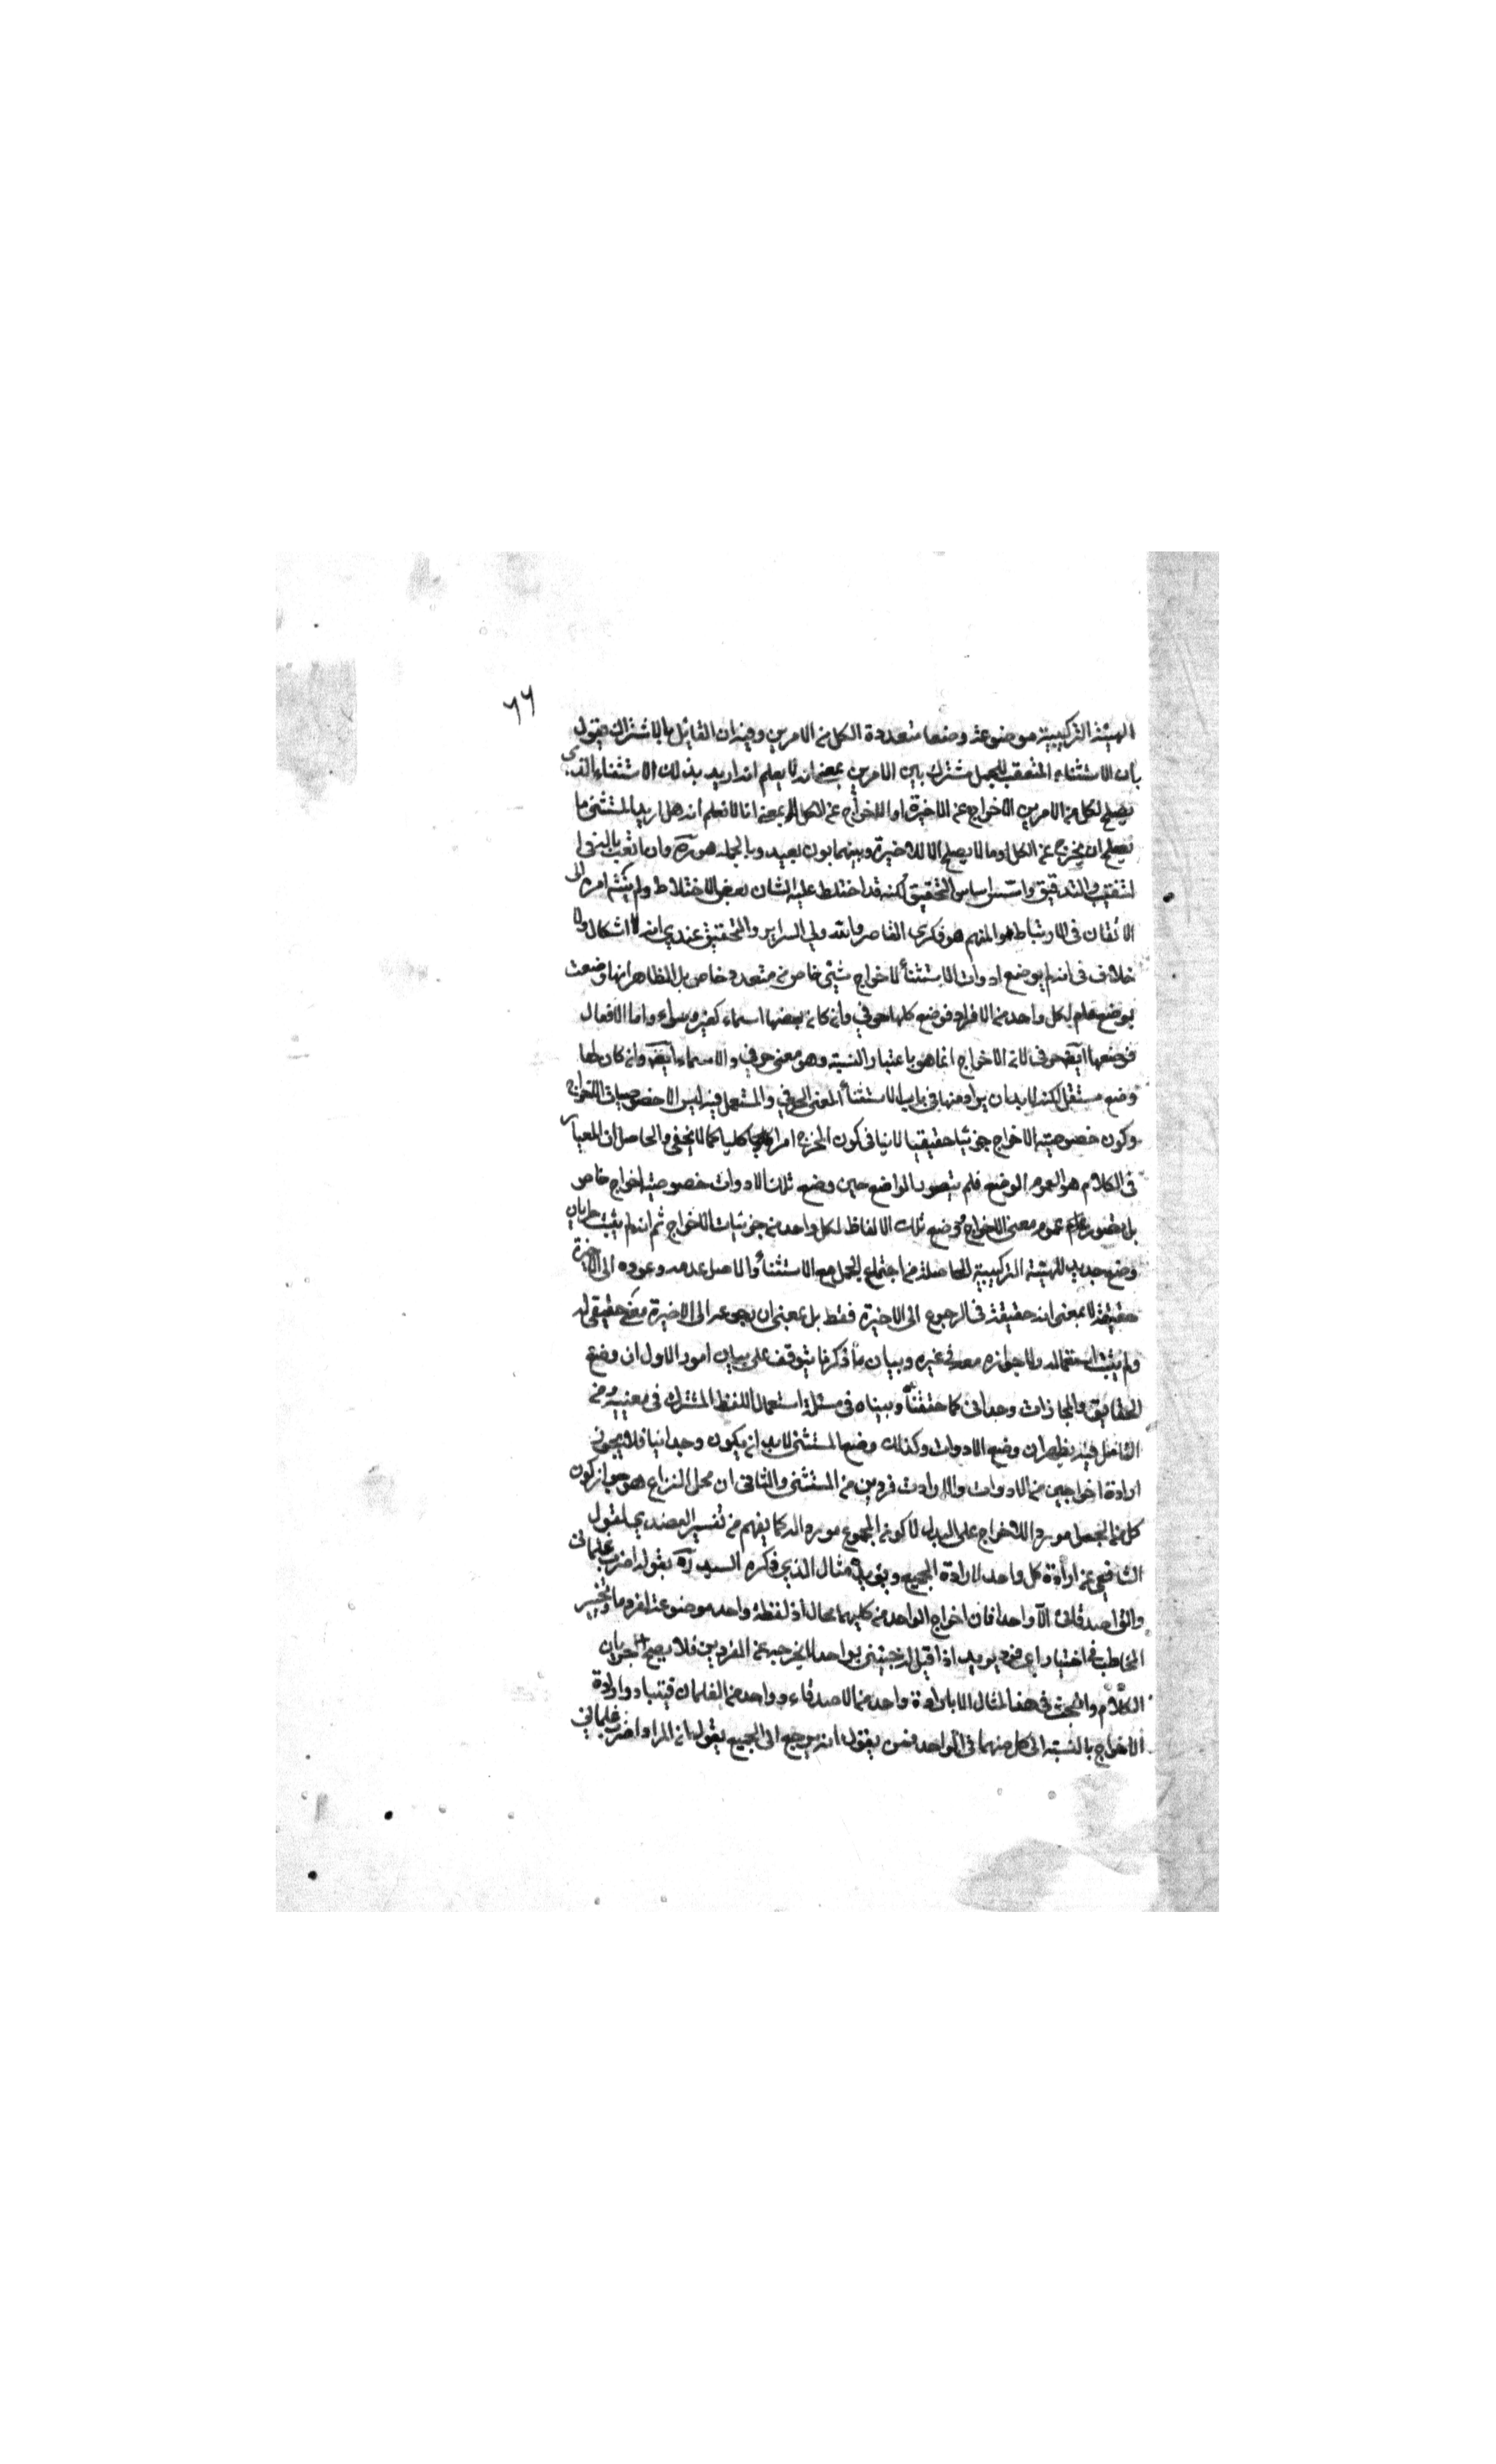 ٦٦
الهيئة التركيبية موضوعة وضعا متعددة لكل من الامرين وفيه ان القائل بالاشتراك يقول
بان الاستثناء المتعقب للجمل مشترك بين الامرين بمعنى انه لا يعلم انه اريد بذلك الاستثناء الذى
يصلح لكل من الامرين الاخراج عن الاخيرة او الاخراج عن الكل لا بمعنى انا لا نعلم انه هل اريد بالمستثنى ما
يصلح ان يخرج عن الكل او ما لا يصلح الا للاخيرة وبينهما بون بعيد وبالجملة هو ره وان بالغ فى
التنقيب والتدقيق واسس اساس التحقيق لكنه قد اختلط عليه الشان بعض الاختلاط ولم ينته امره الى
الاتقان فى الارتباط والمتهم هو فكرى القاصر والله ولي السراير والتحقيق عندي انه لا اشكال ولا
خلاف فى انه لم يوضع ادوات الاستثناء لاخراج شيئ خاص من متعدد خاص بل الظاهر انها وضعت
بوضع عام لكل واحد من الافراد فوضع كلها حرفي وان كان بعضها اسماء كغير وسواء واما الافعال
فوضعها ايضا حرفى لان الاخراج انما هو باعتبار النسبة وهو معنى حرفي والاسماء ايضا وان كان لها
وضع مستقل لكنه لا بد ان يراد منها فى باب الاستثناء المعنى الحرفي والمستعمل فيه ليس الا خصوصيات الاخراج
وكون خصوصية الاخراج جزئيا حقيقيا لا ينافى كون المخرج امرا كليا كما لا يخفى والحاصل ان المعيار
فى الكلام هو العموم الوضع فلم يتصور الواضع حين وضع تلك الادوات خصوصية اخراج خاص
بل تصور عموم معنى الاخراج فوضع تلك الالفاظ لكل واحد من جزئيات الاخراج ثم انه لم يثبت طريان
وضع جديد للهيئة التركيبية الحاصلة من اجتماع الجمل مع الاستثناء والاصل عدمه وعوده الى الاخيرة
حقيقة لا بمعنى انه حقيقة فى الرجوع الى الاخيرة فقط بل بمعنى ان رجوعه الى الاخيرة معنى حقيقي له
ولم يثبت استعماله ولا جوازه معه فى غيره وبيان ما ذكرنا يتوقف على بيان امور الاول ان وضع
الحقايق والمجازات وحدانى كما حققناه وبيناه فى مسئلة استعمال اللفظ المشترك فى معنييه ومن
التامل فيه يظهر ان وضع الادوات وكذلك وضع المستثنى لا بد ان يكون وحدانيا فلا يجوز
ارادة اخراجين من الادوات ولا ارادت فردين من المستثنى والثانى ان محل النزاع هو جواز كون
كل من الجمل موردا للاخراج على البدل لا كون المجموع موردا له كما يفهم من تفسير العضدي لقول
الشافعي عن ارادة كل واحد لا ارادة الجميع ويؤيده مثال الذي ذكره السيد ره بقوله اضرب غلمانى
والق اصدقائى الا واحدا فان اخراج الواحد من كليهما محال اذ لفظة واحد موضوعة لفرد ما وتخيير
المخاطب فى اختيار اى فرد يريد اذا قيل له جئنى بواحد لا يخرجه عن الفردية فلا يصح جريان
الكلام والبحث فى هذا المثال الا بارادة واحد من الاصدقاء وواحد من الغلمان فيتبادر ارادة
الاخراج بالنسبة الى كل منهما فى الواحد فمن يقول انه يرجع الى الجميع يقول ان المراد اضرب غلماني